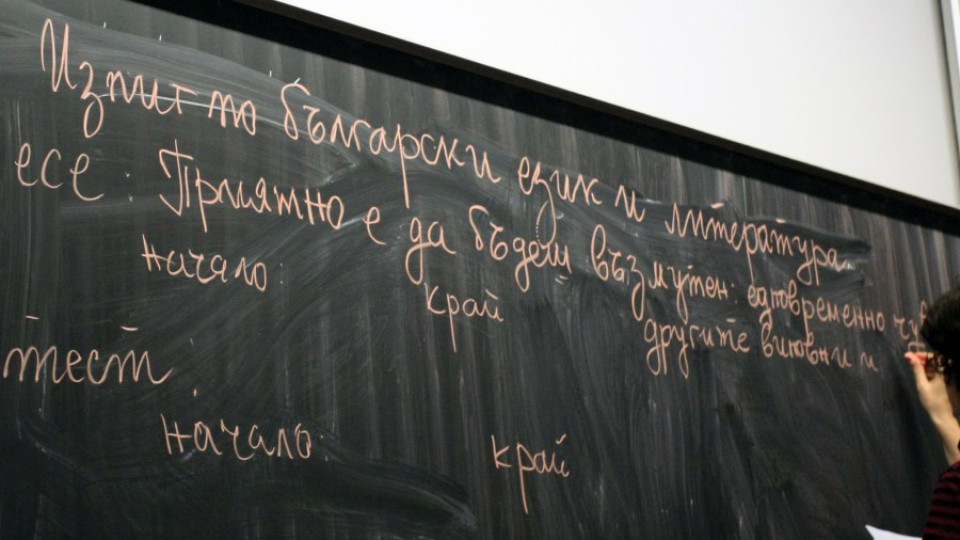 Изпит по български език и литература.
есе: Приятно е да бъдеш възмутен: едновременно
другите виновни и
начало: край
тест:
начало: край